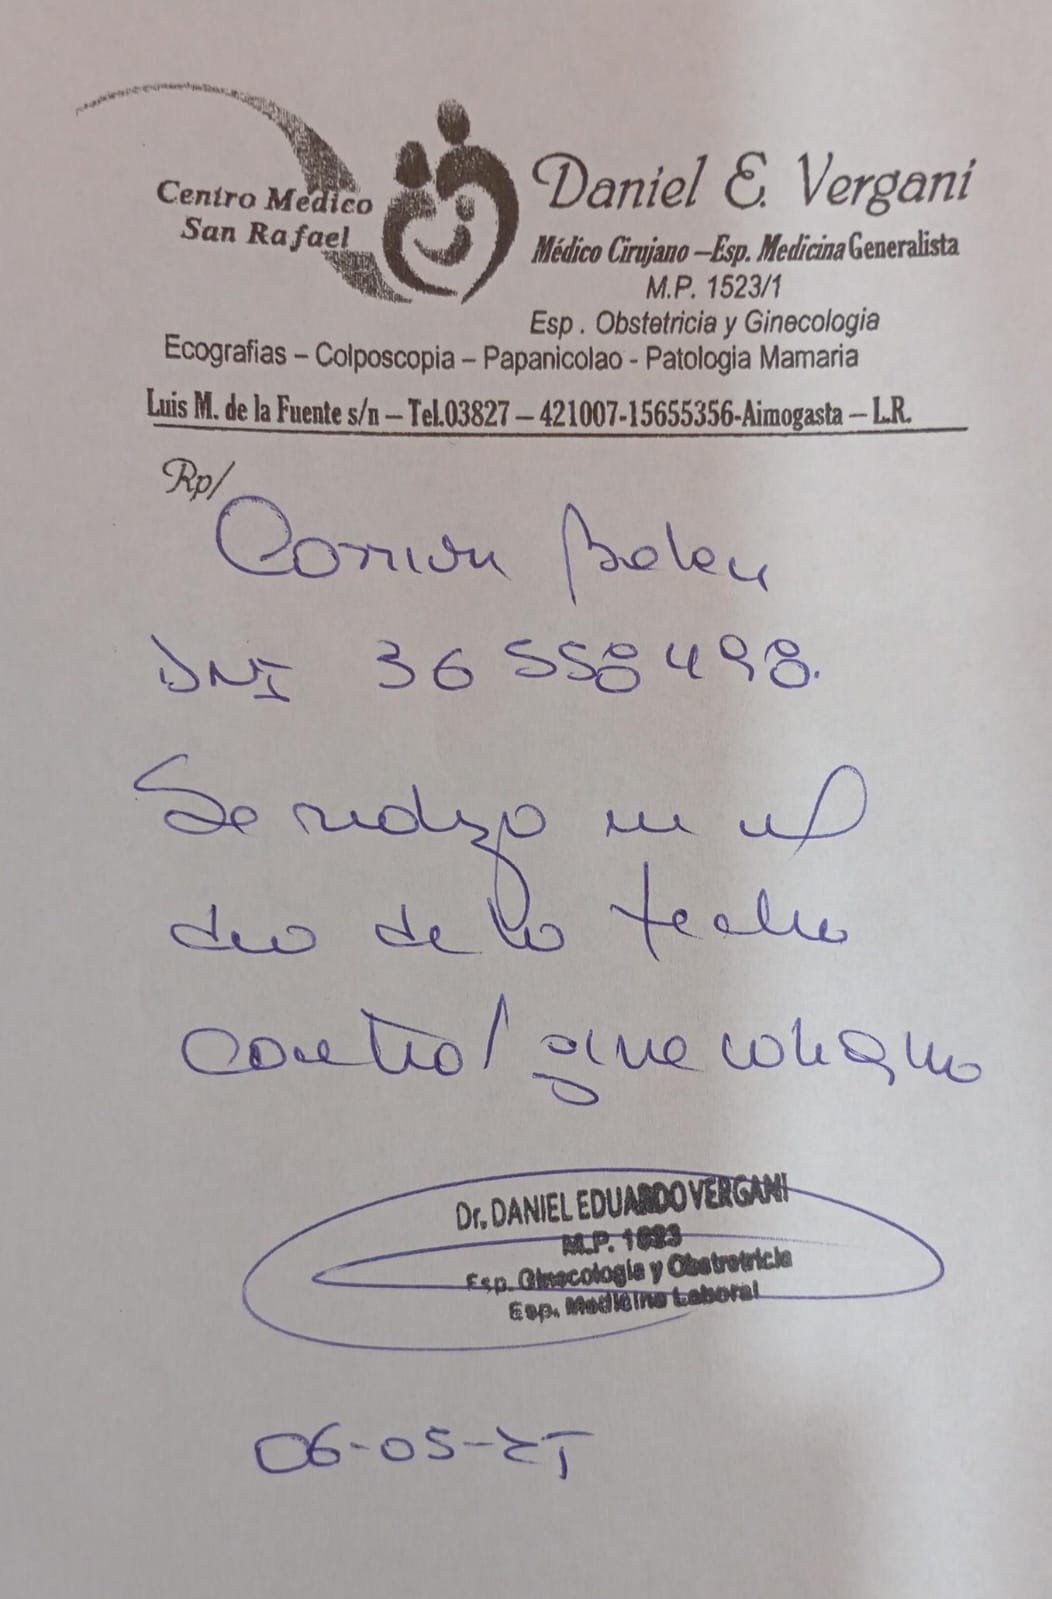 Centro Medico
San Rafael
Daniel E. Vergani
Médico Cirujano – Esp. Medicina Generalista
M.P. 1523/1
Esp . Obstetricia y Ginecologia
Ecografias – Colposcopia – Papanicolao - Patologia Mamaria
Luis M. de la Fuente s/n – Tel.03827 – 421007-15655356-Aimogasta – L.R.
Rp/
Belen
DNI 36 558 498.
Se realizo en el
dia de la fecha
control ginecologico
Dr. DANIEL EDUARDO VERGANI
M.P.
Esp. Ginecologia y Obstetricia
Esp. Medicina Laboral
06-05-